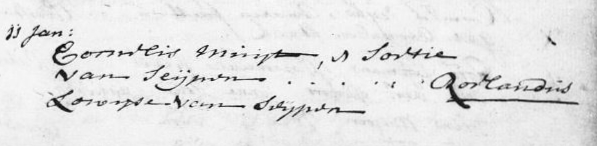 11 Jan:
Cornelis muijt, & Sortie
van Seijpen . . . . . . Rorlandus
Lowyse van Seypen